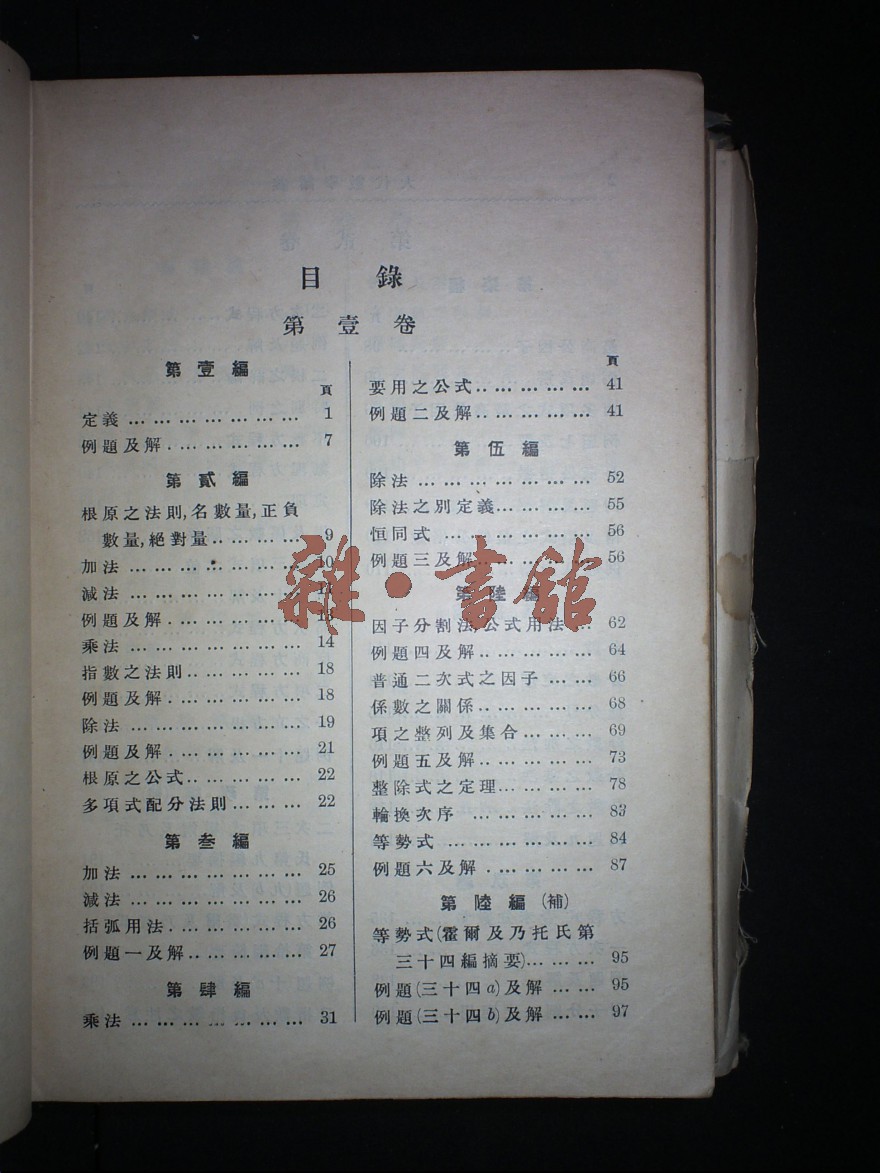 目錄
第壹卷
第壹編
頁
定義 … … … … … … … 1
例題及解 . … … … … … 7
第貳編
根原之法則,名數量,正負
數量,絕對量.. … … … 9
加法 … … … … … … … 10
減法 … … … … … … …
例題及解 . … … … … … 13
乘法 … … … … … … … 14
指數之法則.. … … … … 18
例題及解 . … … … … … 18
除法 … … … … … … … 19
例題及解 . … … … … … 21
根原之公式.. … … … … 22
多項式配分法則… … … 22
第叁編
加法 … … … … … … … 25
減法 … … … … … … … 26
括弧用法. … … … … … 26
例題一及解.. … … … … 27
第肆編
乘法 … … … … … … … 31
頁
要用之公式.. … … … … 41
例題二及解.. … … … … 41
第伍編
除法 … … … … … … … 52
除法之別定義… … … … 55
恒同式 … … … … … … 56
例題三及解.. … … … … 56
第陸編
因子分割法,公式用法 … 62
例題四及解.. … … … … 64
普通二次式之因子 … … 66
係數之關係.. … … … … 68
項之整列及集合… … … 69
例題五及解.. … … … … 73
整除式之定理… … … … 78
輪換次序 . … … … … … 83
等勢式 … … … … … … 84
例題六及解 . … … … … 87
第陸編(補)
等勢式(霍爾及乃托氏第
三十四編摘要)… … … 95
例題(三十四a)及解 … … 95
例題(三十四b)及解 … … 97
雜·書館